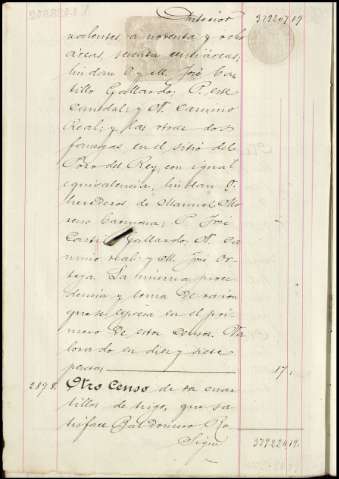 Anterior 37,207.19
valentes a noventa y ocho
áreas, sesenta centiáreas;
lindan O. y M. José Cas-
tillo Gallardo, P. este
caudal; y N. camino
Real; y las otras dos
fanegas en el sitio del
Pozo del Rey, con igual
equivalencia, lindan O.
herederos de Manuel Mo-
reno Carmona; P. José
Castillo Gallardo, N. ca-
mino real; y M. José Or-
tega. La misma proce-
dencia y toma de razon
que se espresa en el pri-
mero de estos censos. Va-
lorado en diez y siete
pesetas 17 "
289.8. Otro Censo de
tillos de trigo, que sa-
tisface Bal-domero Ro
Sigue 37,224.19.